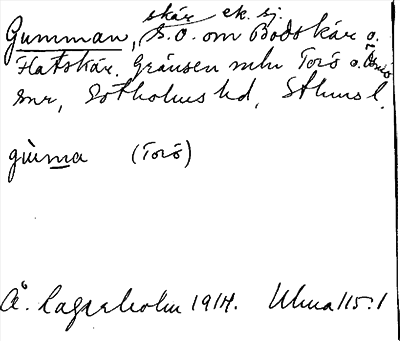 skär ek. sj.
Gumman, S.O. om Bodskär o.
Flatskär. Gränsen mln Torö o. Ösmo
snr, Sotholms hd, Sthms l.
gùma (Torö)
Å. Lagerholm 1914. Uhma 115:1